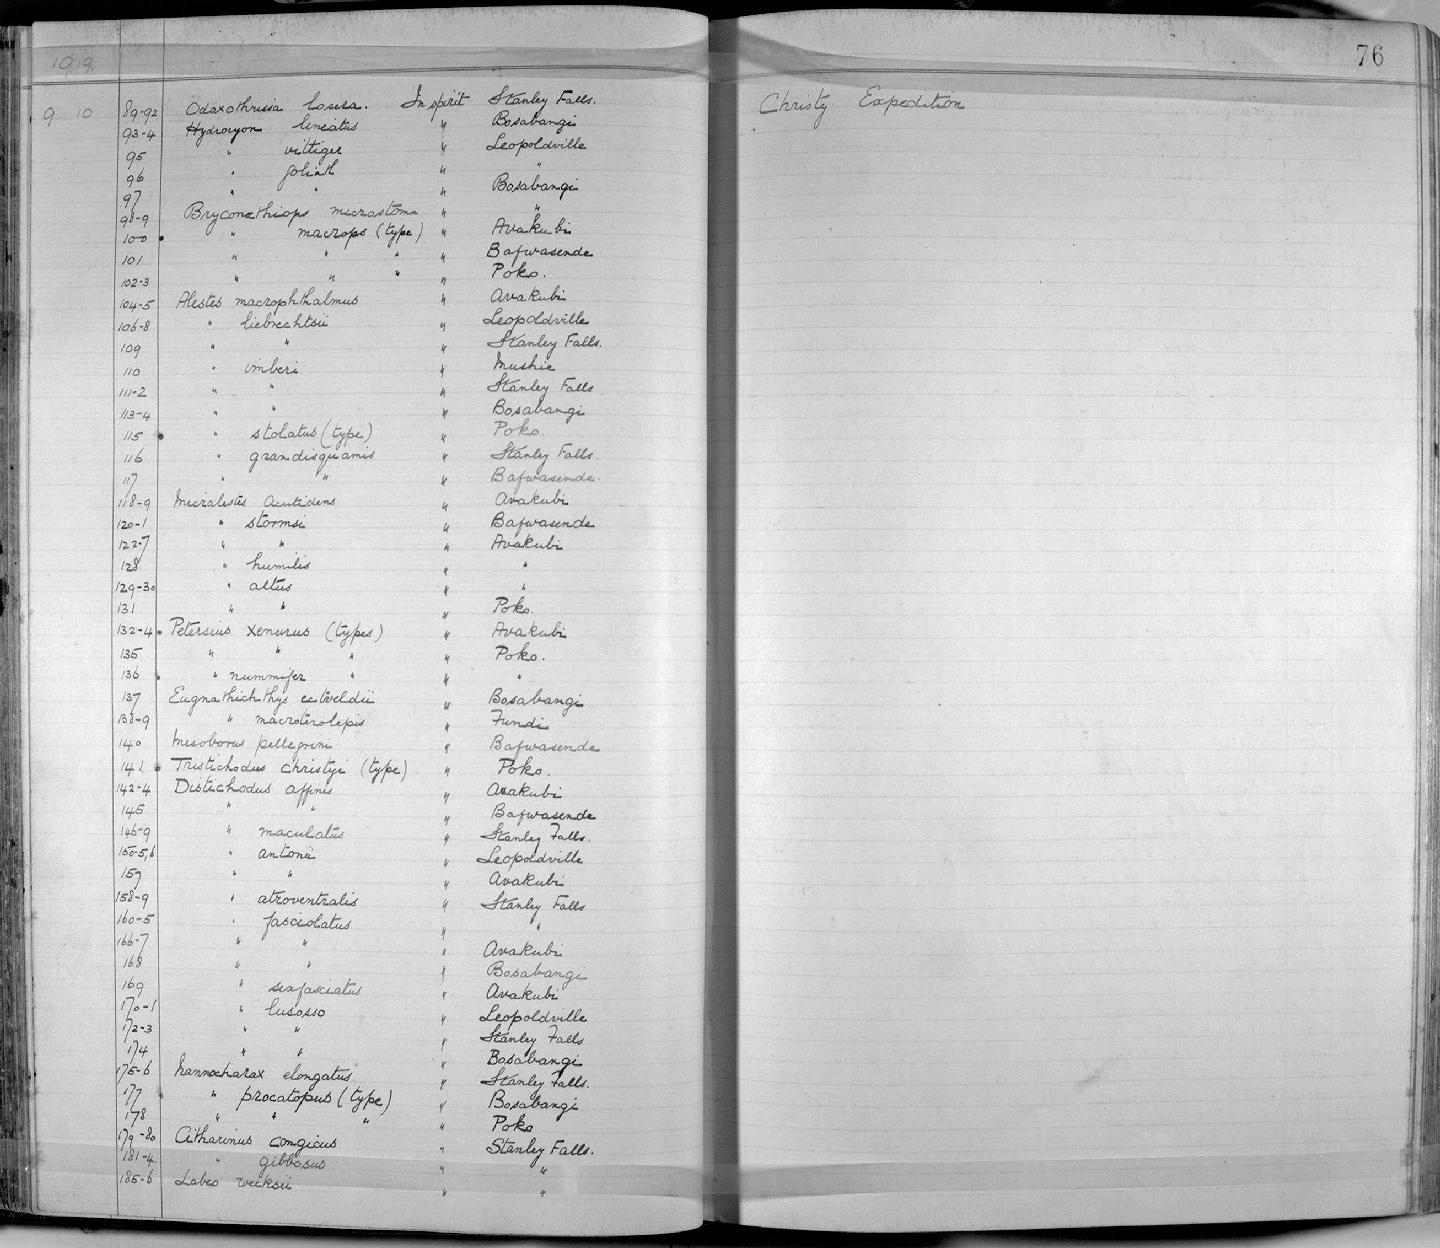 76
1919
9 10 89-92 Odaxothrissa losera. In spirit Stanley Falls. Christy Expedition
93-4 Hydrocyon lineatus " Bosabangi
95 " vittiger " Leopoldville
96 " goliath " "
97 " " " Bosabangi
98-9 Bryconaethiops microstoma " "
100 " macrops (type) " Avakubi
101 " " " " Bafwasende
102-3 " " " " Poko.
104-5 Alestes macrophthalmus " Avakubi
106-8 " liebrechtsii " Leopoldville
109 " " " Stanley Falls.
110 " imberi " Mushie
111-2 " " " Stanley Falls
113-4 " " " Bosabangi
115 " stolatus (type) " Poko.
116 " grandisquamis " Stanley Falls.
117 " " " Bafwasende.
118-9 Micralestes acutidens " Avakubi
120-1 " stormsi " Bafwasende
122-7 " " " Avakubi
128 " humilis " "
129-30 " altus " "
131 " " " Poko.
132-4 Petersius xenurus (types) " Avakubi
135 " " " " Poko.
136 " nummifer " " "
137 Eugnathichthys eetveldii " Bosabangi
138-9 " macroterolepis " Fundi
140 Mesoborus pellegrini " Bafwasende
141 Tristichodus christyi (type) " Poko.
142-4 Distichodus affinis " Avakubi
145 " " " Bafwasende
146-9 " maculatus " Stanley Falls.
150-5,6 " antonii " Leopoldville
157 " " " Avakubi
158-9 " atroventralis " Stanley Falls
160-5 " fasciolatus " "
166-7 " " " Avakubi
168 " " " Bosabangi
169 " sexfasciatus " Avakubi
170-1 " lusosso " Leopoldville
172-3 " " " Stanley Falls
174 " " " Bosabangi
175-6 Nannocharax elongatus " Stanley Falls.
177 " procatopus (type) " Bosabangi
178 " " " " Poko
179-80 Citharinus congicus " Stanley Falls.
181-4 " gibbosus " "
185-6 Labeo weeksii " "